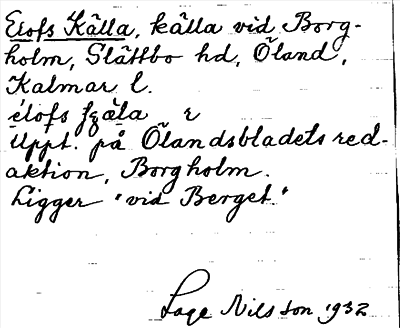 Elofs Källa, källa vid Borg-
holm, Slättbo hd, Öland,
Kalmar l.
élofs
Uppt. på Ölandsbladets red-
aktion, Borgholm.
Ligger "vid Berget."
Lage Nilsson 1932